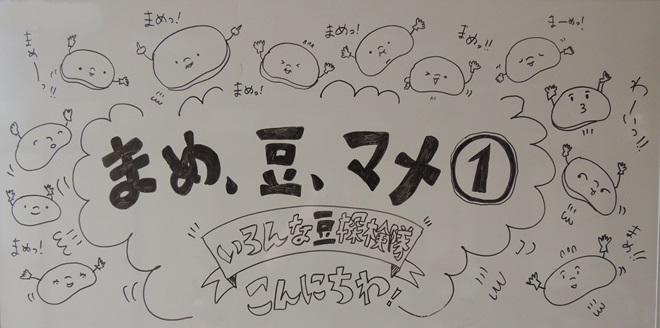 まめーっ!!
まめっ!
まめっ!
まめっ!!
まーめっ!
わーいっ!!
まめ、豆、マメ①
いろんな豆探検隊
こんにちわ!
まめっ!
まめっ!!